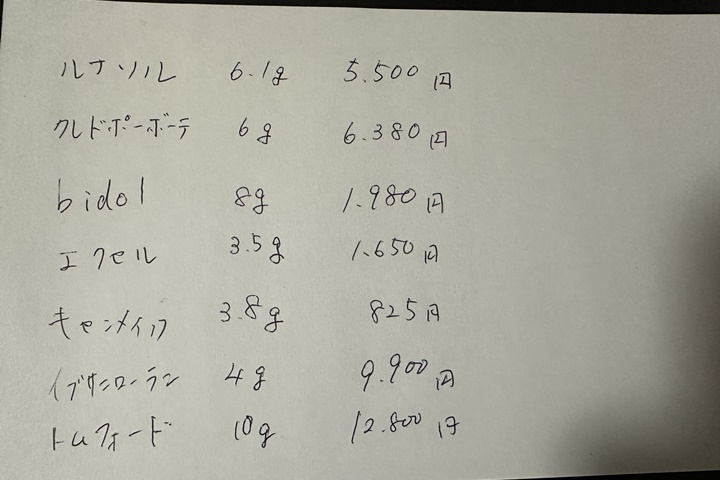 ルナソル 6.1g 5.500円
クレドポーボーテ 6g 6.380円
bidol 8g 1.980円
エクセル 3.5g 1.650円
キャンメイク 3.8g 825円
イブサンローラン 4g 9.900円
トムフォード 10g 12.800円